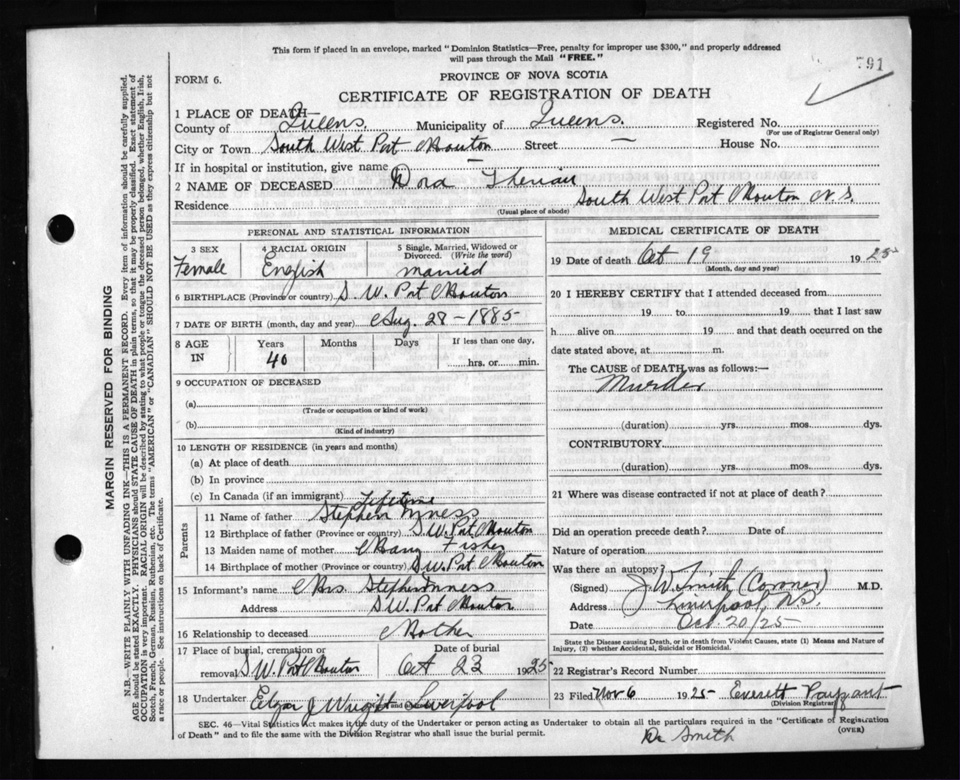 This form if placed in an envelope, marked "Dominion Statistics—Free, penalty for improper use $300," and properly addressed
will pass through the Mail "FREE."
791
FORM 6.
PROVINCE OF NOVA SCOTIA
CERTIFICATE OF REGISTRATION OF DEATH
1 PLACE OF DEATH—
County of Queens. Municipality of Queens. Registered No.
(For use of Registrar General only)
City or Town South West Port Mouton Street — House No.
If in hospital or institution, give name —
2 NAME OF DECEASED Dora
Residence South West Port Mouton N.S.
(Usual place of abode)
PERSONAL AND STATISTICAL INFORMATION
3 SEX 4 RACIAL ORIGIN 5 Single, Married, Widowed or Divorced. (Write the word)
Female English married
6 BIRTHPLACE (Province or country) S.W. Port Mouton
7 DATE OF BIRTH (month, day and year) Aug. 28 - 1885
8 AGE IN Years Months Days If less than one day,
40 hrs. or min.
9 OCCUPATION OF DECEASED
(a)
(Trade or occupation or kind of work)
(b)
(Kind of industry)
10 LENGTH OF RESIDENCE (in years and months)
(a) At place of death
(b) In province
(c) In Canada (if an immigrant) Lifetime
Parents
11 Name of father Stephen
12 Birthplace of father (Province or country) S.W. Port Mouton
13 Maiden name of mother Fisher
14 Birthplace of mother (Province or country) S.W. Port Mouton
15 Informant's name Mrs. Stephen
Address S.W. Port Mouton
16 Relationship to deceased Mother
17 Place of burial, cremation or removal Date of burial
S.W. Port Mouton Oct 23 1925
18 Undertaker Wright Liverpool
MEDICAL CERTIFICATE OF DEATH
19 Date of death Oct 19 1925
(Month, day and year)
20 I HEREBY CERTIFY that I attended deceased from
19 to 19 that I last saw
h alive on 19 and that death occurred on the
date stated above, at m.
The CAUSE of DEATH was as follows:—
Murder
(duration) yrs. mos. dys.
CONTRIBUTORY
(duration) yrs. mos. dys.
21 Where was disease contracted if not at place of death?
Did an operation precede death? Date of
Nature of operation
Was there an autopsy?
(Signed) J.W. Smith (Coroner) M.D.
Address Liverpool, N.S.
Date Oct. 20/25
State the Disease causing Death, or in death from Violent Causes, state (1) Means and Nature of
Injury, (2) whether Accidental, Suicidal or Homicidal.
22 Registrar's Record Number
23 Filed Nov 6 1925 Everett
(Division Registrar)
SEC. 46—Vital Statistics Act makes it the duty of the Undertaker or person acting as Undertaker to obtain all the particulars required in the "Certificate of Registration
of Death" and to file the same with the Division Registrar who shall issue the burial permit.
(OVER)
Dr Smith
MARGIN RESERVED FOR BINDING
N.B.—WRITE PLAINLY WITH UNFADING INK—THIS IS A PERMANENT RECORD. Every item of information should be carefully supplied.
AGE should be stated EXACTLY. PHYSICIANS should STATE CAUSE OF DEATH in plain terms, so that it may be properly classified. Exact statement of
OCCUPATION is very important. RACIAL ORIGIN will be described by stating to what people or tongue the deceased person belonged, whether English, Irish,
Scotch, French, German, Russian, Ruthenian, etc. The terms "AMERICAN" or "CANADIAN" SHOULD NOT BE USED as they express citizenship but not
a race or people. See instructions on back of Certificate.